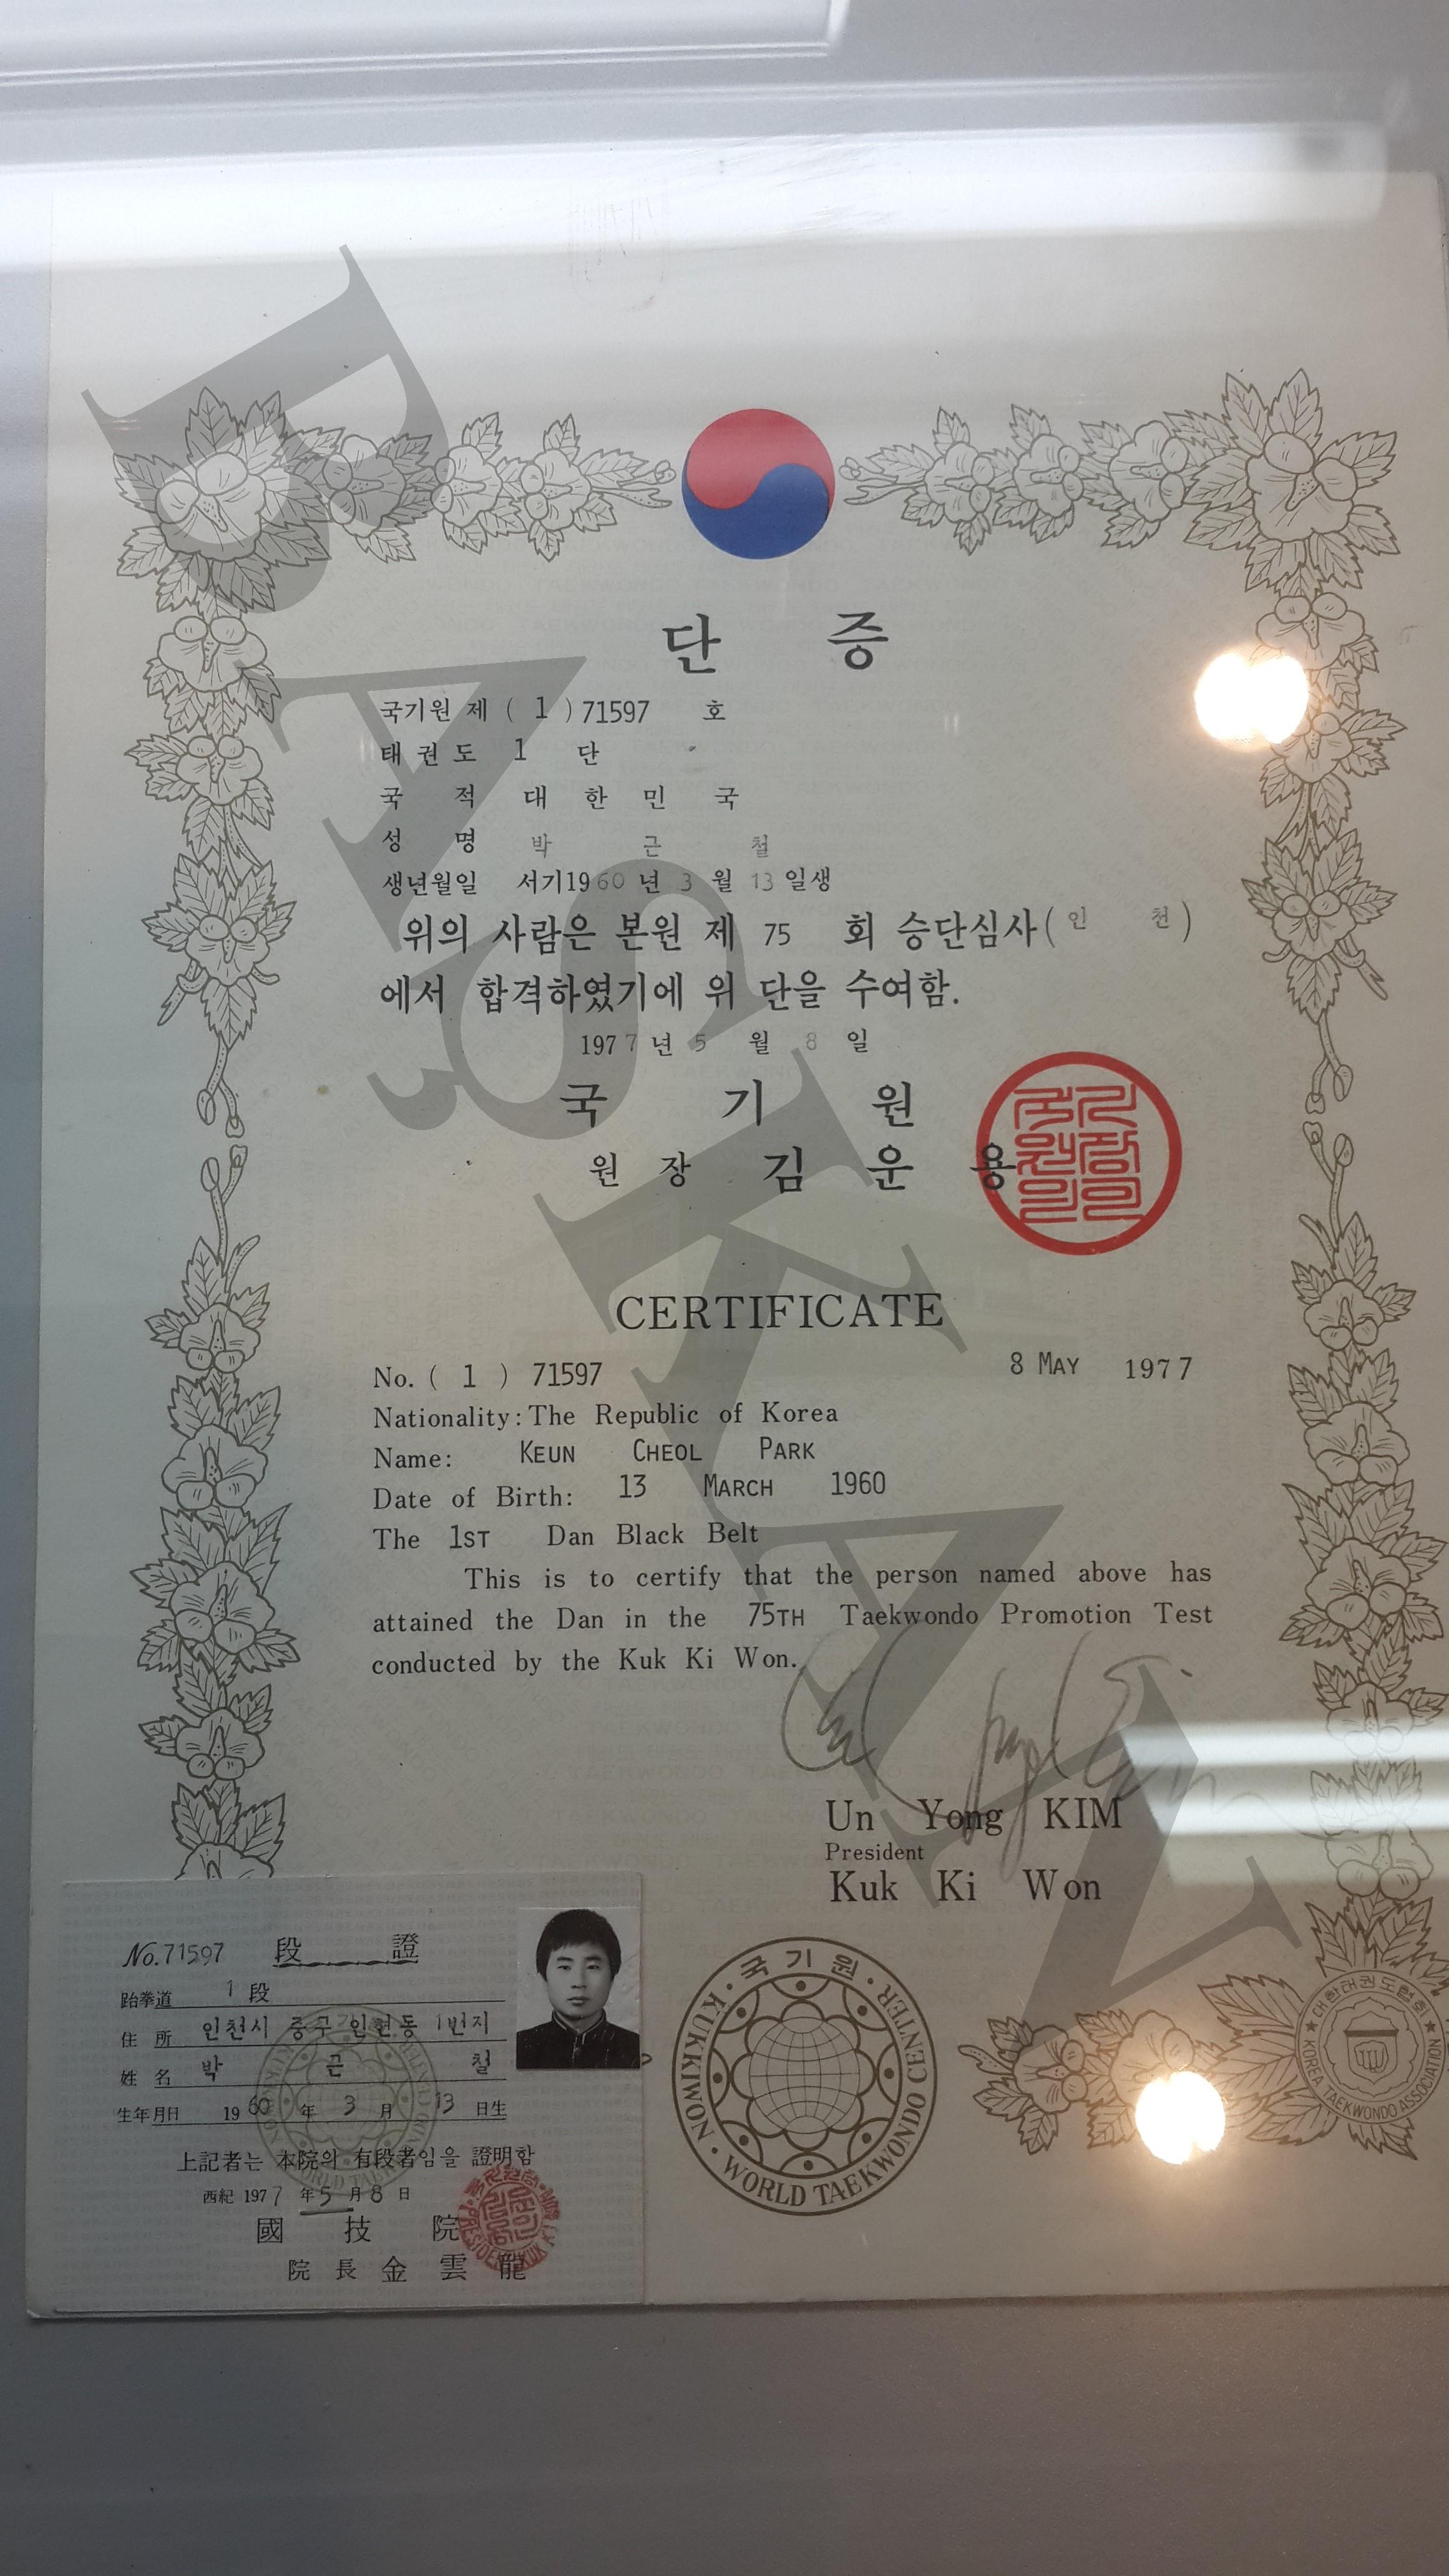 단 증
국기원 제 ( 1 ) 71597 호
태 권 도 1 단
국 적 대 한 민 국
성 명 박 근 철
생년월일 서기1960 년 3 월 13 일생
위의 사람은 본원 제 75 회 승단심사(인 천)
에서 합격하였기에 위 단을 수여함.
1977 년 5 월 8 일
국 기 원
원 장 김 운 용
CERTIFICATE
No. ( 1 ) 71597 8 MAY 1977
Nationality: The Republic of Korea
Name: KEUN CHEOL PARK
Date of Birth: 13 MARCH 1960
The 1ST Dan Black Belt
This is to certify that the person named above has
attained the Dan in the 75TH Taekwondo Promotion Test
conducted by the Kuk Ki Won.
Un Yong KIM
President
Kuk Ki Won
No.71597 段 證
跆拳道 1 段
住 所 인천시 중구 인현동 1번지
姓 名 박 근 철
生年月日 1960 年 3 月 13 日生
上記者는 本院의 有段者임을 證明함
西紀 1977 年 5 月 8 日
國 技 院
院 長 金 雲 龍
국기원
KUKKIWON · WORLD TAEKWONDO CENTER
대한태권도협회
KOREA TAEKWONDO ASSOCIATION
PASKAY